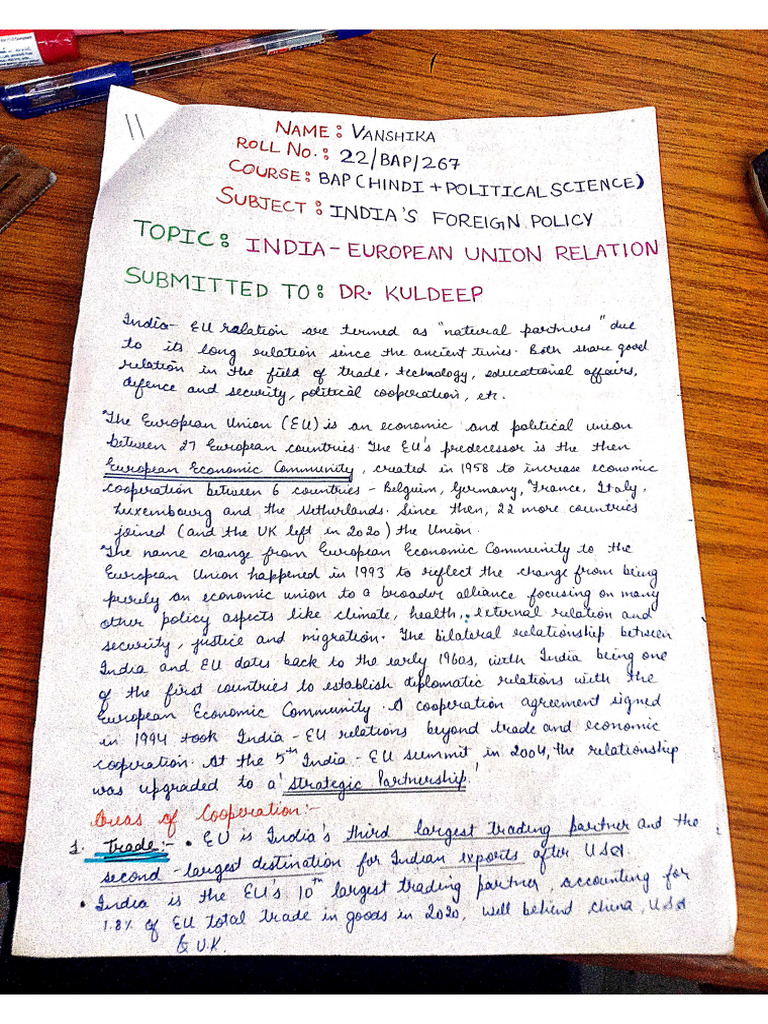 11
NAME: VANSHIKA
ROLL NO.: 22/BAP/267
COURSE: BAP(HINDI + POLITICAL SCIENCE)
SUBJECT: INDIA'S FOREIGN POLICY
TOPIC: INDIA-EUROPEAN UNION RELATION
SUBMITTED TO: DR. KULDEEP
India- EU relation are termed as "natural partners" due
to its long relation since the ancient times. Both share good
relation in the field of trade, technology, educational affairs,
defence and security, political cooperation, etc.
The European Union (EU) is an economic and political union
between 27 European countries. The EU's predecessor is the then
European Economic Community, created in 1958 to increase economic
cooperation between 6 countries - Belguim, Germany, France, Italy,
Luxembourg and the Netherlands. Since then, 22 more countries
joined (and the UK left in 2020) the Union.
The name change from European Economic Community to the
European Union happened in 1993 to reflect the change from being
purely an economic union to a broader alliance focusing on many
other policy aspects like climate, health, external relation and
security, justice and migration. The bilateral relationship between
India and EU dates back to the early 1960s, with India being one
of the first countries to establish diplomatic relations with the
European Economic Community. A cooperation agreement signed
in 1994 took India - EU relations beyond trade and economic
cooperation. At the 5th India - EU summit in 2004, the relationship
was upgraded to a 'Strategic Partnership.'
Areas of Cooperation:-
1. Trade:- • EU is India's third largest trading partner and the
second-largest destination for Indian exports after USA.
• India is the EU's 10th largest trading partner, accounting for
1.8% of EU total trade in goods in 2020, well behind china, USA
& U.K.